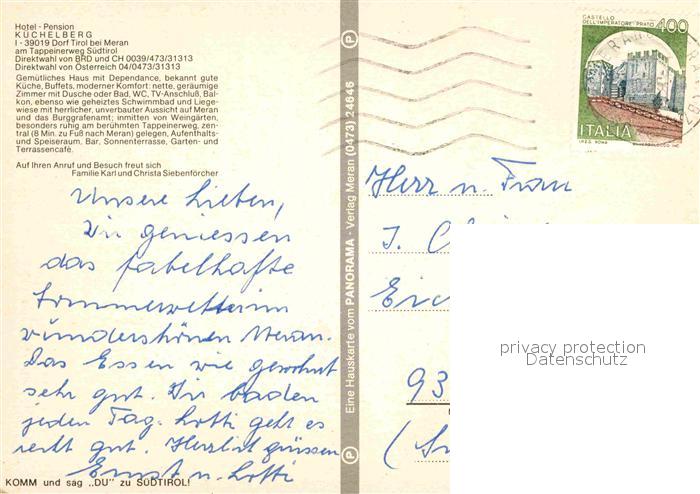 Hotel - Pension
KÜCHELBERG
I - 39019 Dorf Tirol bei Meran
am Tappeinerweg Südtirol
Direktwahl von BRD und CH 0039/473/31313
Direktwahl von Österreich 04/0473/31313
Gemütliches Haus mit Dependance, bekannt gute
Küche, Buffets, moderner Komfort: nette, geräumige
Zimmer mit Dusche oder Bad, WC, TV-Anschluß, Bal-
kon, ebenso wie geheiztes Schwimmbad und Liege-
wiese mit herrlicher, unverbauter Aussicht auf Meran
und das Burggrafenamt; inmitten von Weingärten,
besonders ruhig am berühmten Tappeinerweg, zen-
tral (8 Min. zu Fuß nach Meran) gelegen, Aufenthalts-
und Speiseraum, Bar, Sonnenterrasse, Garten- und
Terrassencafé.
Auf Ihren Anruf und Besuch freut sich
Familie Karl und Christa Siebenförcher
Unsere Lieben,
Wir geniessen
das fabelhafte
Sommerwetter im
wunderschönen Meran.
Das Essen wie gewohnt
sehr gut. Wir baden
jeden Tag. Lotti geht es
recht gut. Herzlich grüssen
Ernst u. Lotti
KOMM und sag „DU" zu SÜDTIROL!
Eine Hauskarte vom PANORAMA - Verlag Meran (0473) 24646
P
P
CASTELLO
DELL'IMPERATORE PRATO
400
ITALIA
I.P.Z.S. ROMA
Herr u. Frau
J.
93
privacy protection
Datenschutz